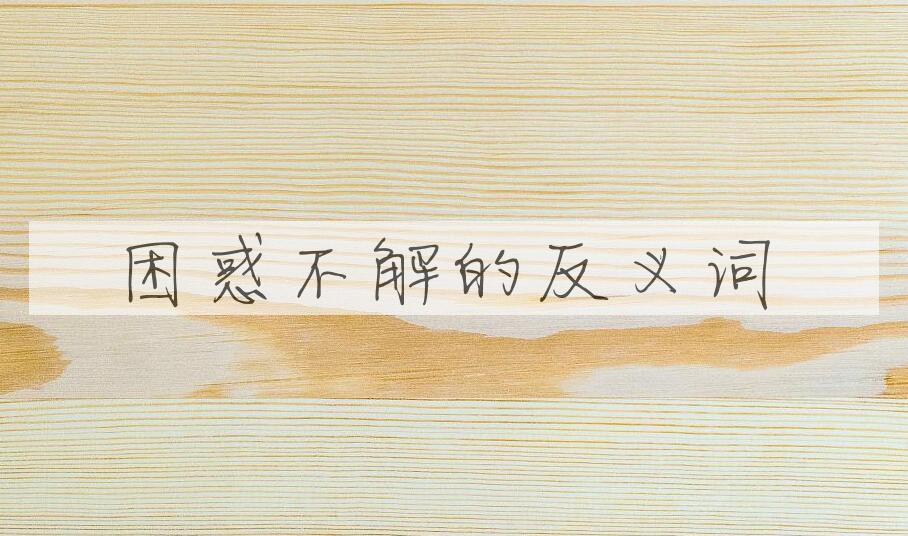 困惑不解的反义词